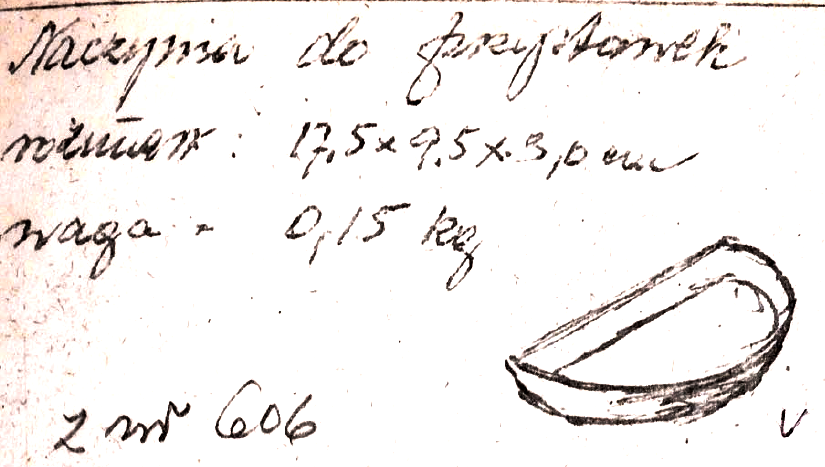 Naczynia do przystawek
rozmiar : 17,5 x 9,5 x 3,0 cm
waga - 0,15 kg
z nr 606
V